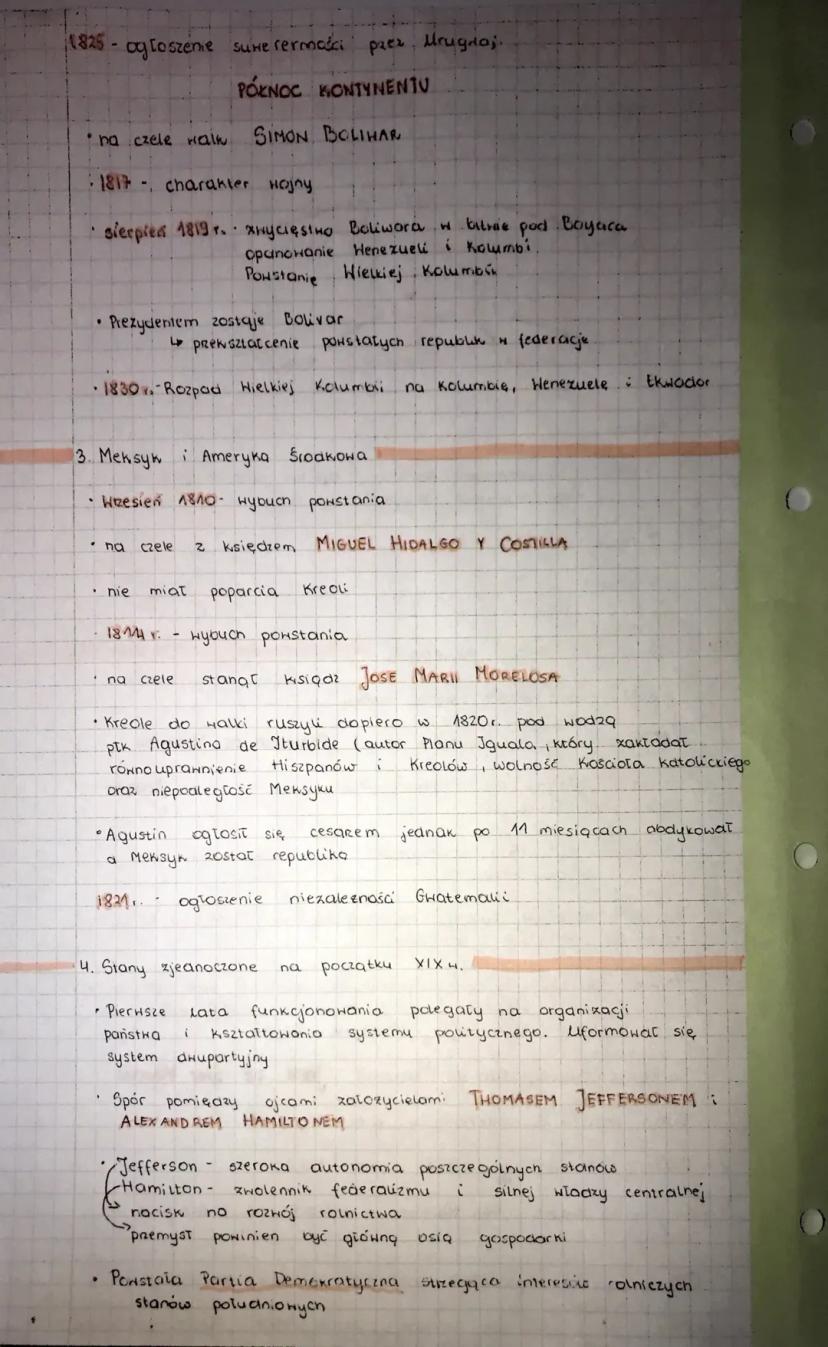 1825 - ogłoszenie suwerenności przez Urugwaj.
PÓŁNOC KONTYNENTU
• na czele walk SIMON BOLIWAR
• 1817 - charakter wojny
• sierpień 1819 r. - zwycięstwo Boliwora w bitwie pod Boyaca
opanowanie Wenezueli i Kolumbi.
Powstanie Wielkiej Kolumbii
• Prezydentem zostaje Bolivar
↳ przekształcenie powstałych republik w federacje
• 1830 r. - Rozpad Wielkiej Kolumbii na Kolumbię, Wenezuelę i Ekwador
3. Meksyk i Ameryka Środkowa
• Wrzesień 1810 - wybuch powstania
• na czele z księdzem MIGUEL HIDALGO Y COSTILLA
• nie miał poparcia Kreoli
• r. - wybuch powstania
• na czele stanął ksiądz JOSE MARII MORELOSA
• Kreole do walki ruszyli dopiero w 1820 r. pod wodzą
płk Agustina de Iturbide (autor Planu Iguala, który zakładał
równouprawnienie Hiszpanów i Kreolów, wolność Kościoła Katolickiego
oraz niepodległość Meksyku
• Agustin ogłosił się cesarzem jednak po 11 miesiącach abdykował
a Meksyk został republiką
1821 r. - ogłoszenie niezależności Gwatemalii
4. Stany zjednoczone na początku XIX w.
• Pierwsze lata funkcjonowania polegały na organizacji
państwa i kształtowania systemu politycznego. Uformował się
system dwupartyjny
• Spór pomiędzy ojcami założycielami THOMASEM JEFFERSONEM i
ALEXANDREM HAMILTONEM
• Jefferson - szeroka autonomia poszczególnych stanów
Hamilton - zwolennik federalizmu i silnej władzy centralnej
nacisk na rozwój rolnictwa
przemysł powinien być główną osią gospodarki
• Powstała Partia Demokratyczna strzegąca interesów rolniczych
stanów południowych